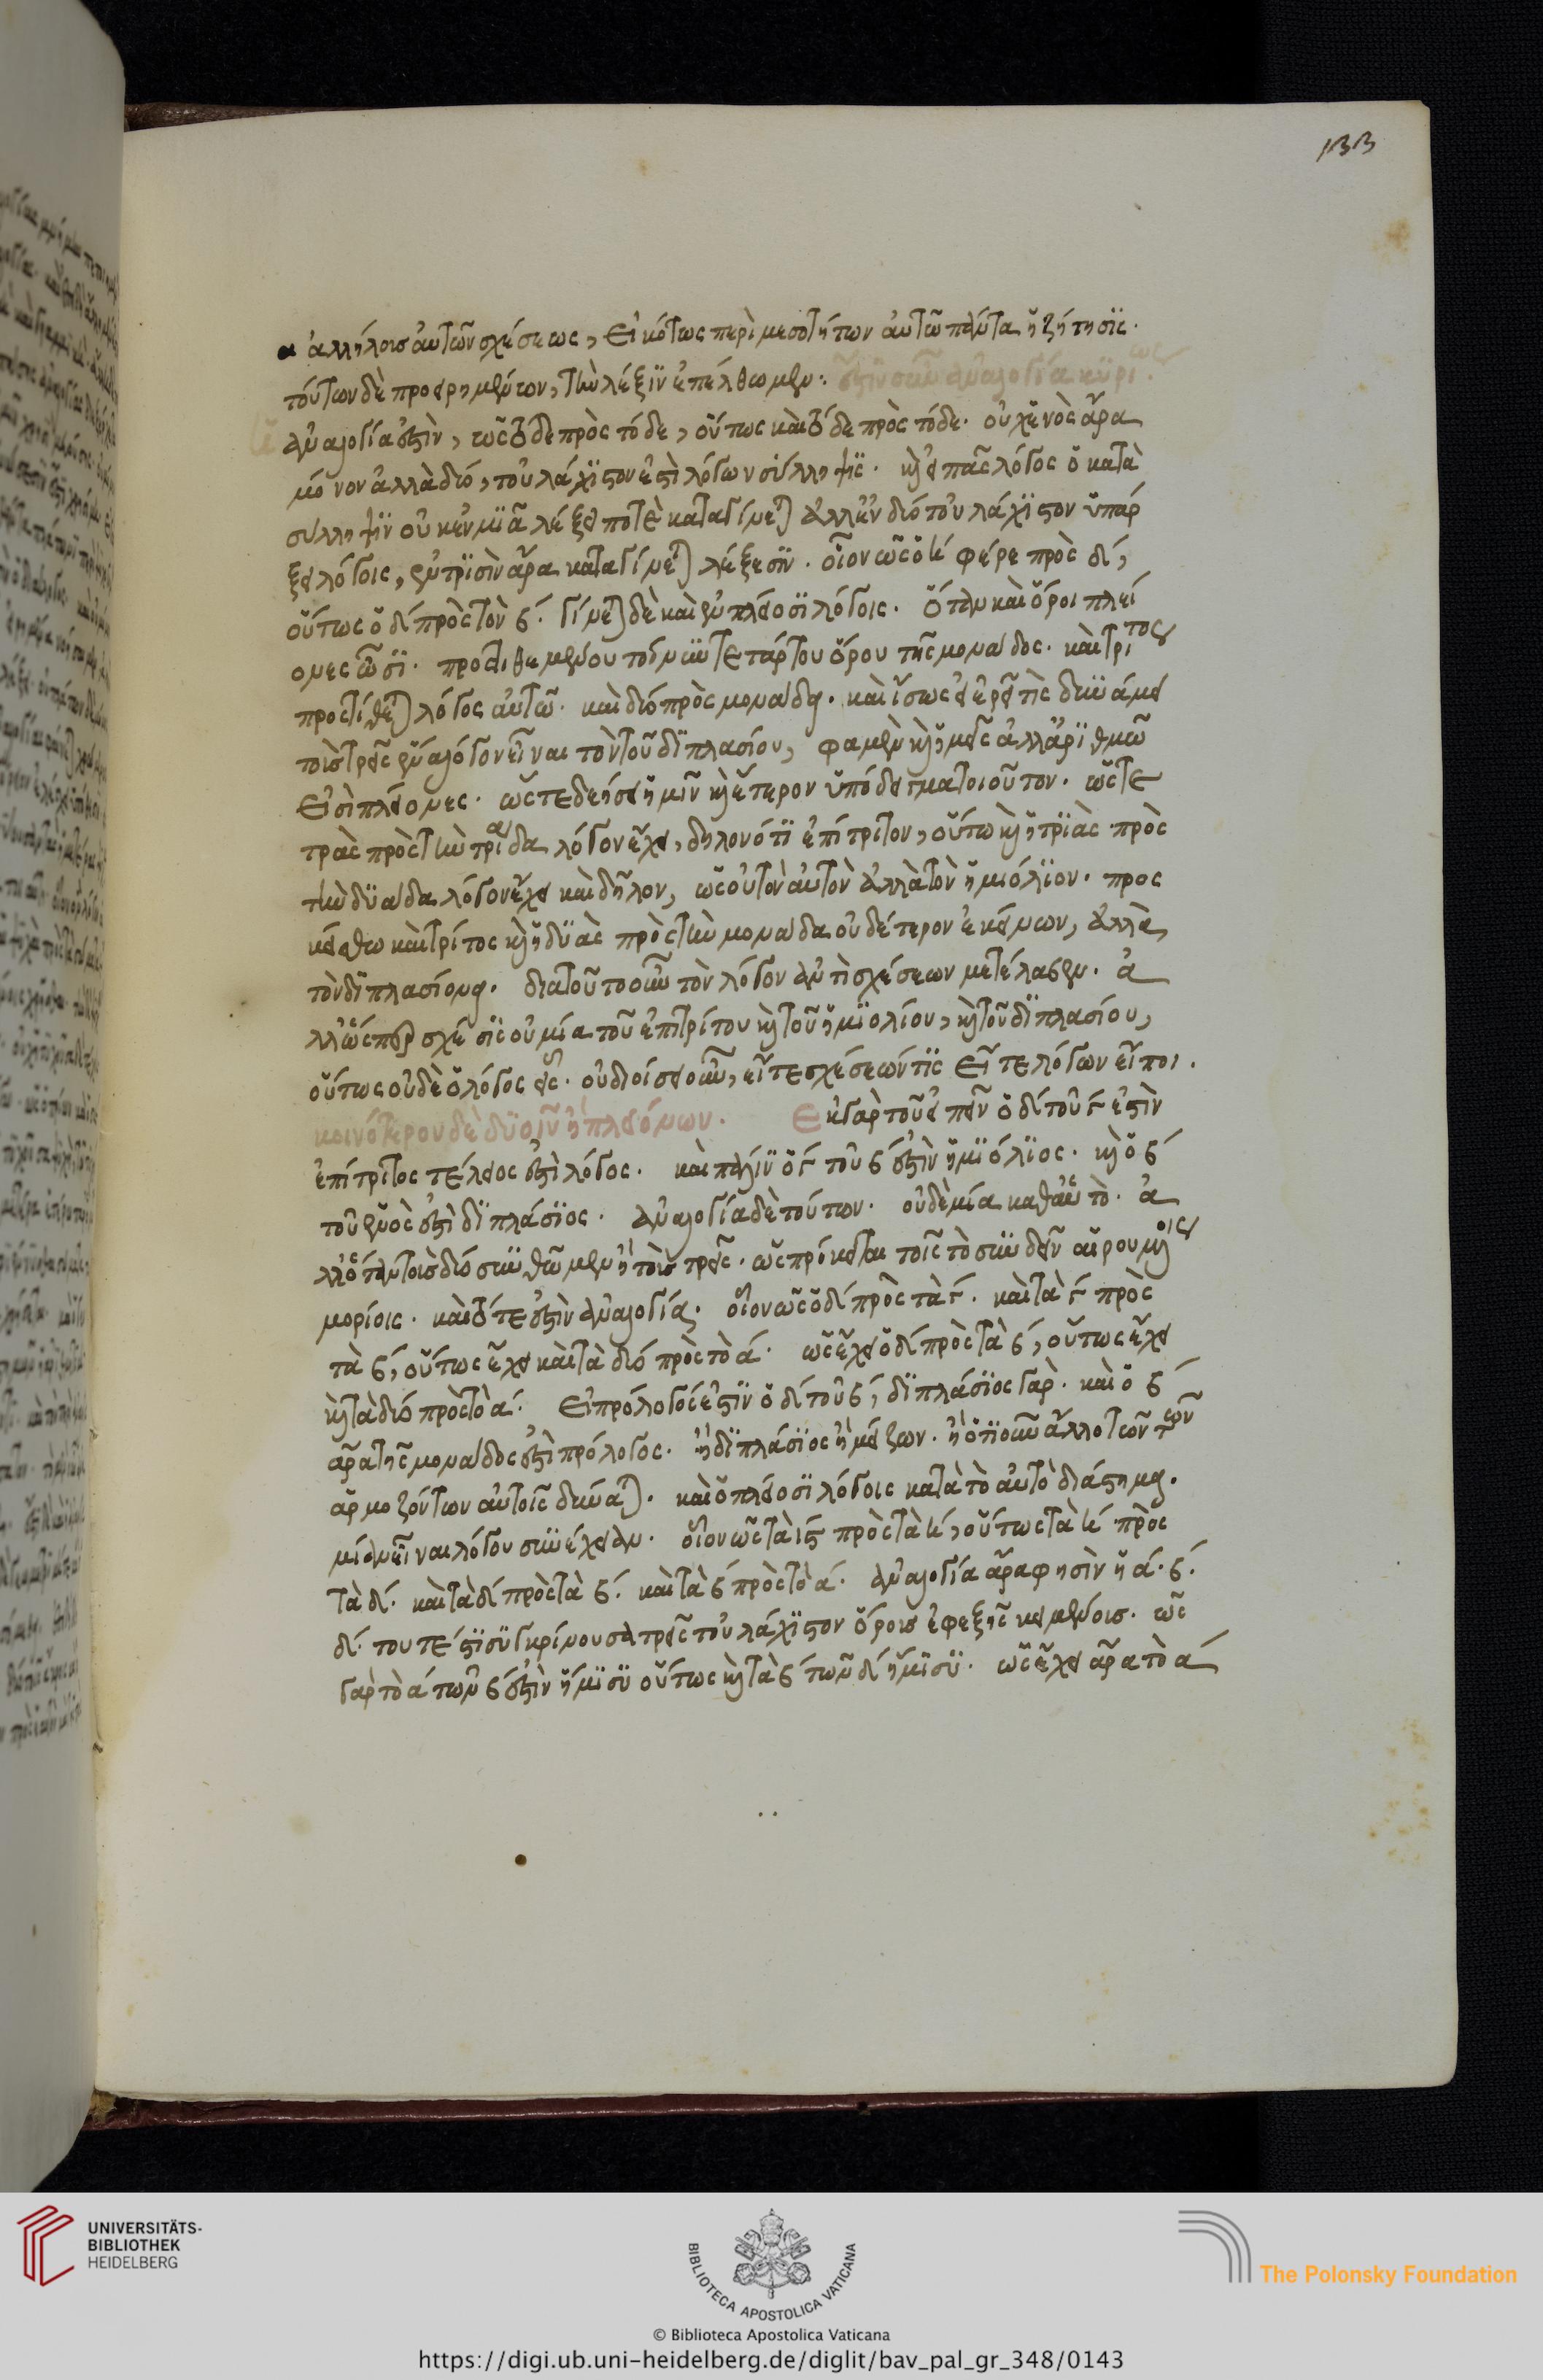 133
ἀλλήλοις αὐτῶν σχέσεως, εἰκότως περὶ μεσοτήτων αὐτῶ πάντα ἡ ζήτησις.
τούτων δὲ προειρημένων, τὴν λέξιν ἐπέλθωμεν: ἔστιν οὖν ἀναλογία κυρίως
ἀναλογία ἐστὶν, ὡς τόδε πρὸς τόδε, οὕτως καὶ τόδε πρὸς τόδε. οὐχ ἑνὸς ἄρα
μόνον ἀλλὰ δύο, τοὐλάχιστον ἐστὶ λόγων σύλληψις. καὶ εἰ πᾶς λόγος ὁ κατὰ
σύλληψιν οὐκ ἐν μιᾶ λέξει ποτὲ καταγίνεται ἀλλ' ἐν δυό τοὐλάχιστον ὑπάρ
ξει λόγοις, ἐν τρισὶν ἄρα καταγίνεται λέξεσιν. οἷον ὡς ὁ η φέρε πρὸς δ,
οὕτως ὁ δ πρὸς τὸν β. γίνεται δὲ καὶ ἐν πλείοσι λόγοις. ὅταν καὶ ὅροι πλεί
ονες ὦσι. προστιθεμένου τοίνυν τετάρτου ὅρου τῆς μονάδος. καὶ τρίτος
προστίθεται λόγος αὐτῶ. καὶ δυό πρὸς μονάδα. καὶ ἴσως εἰ ἐρεῖ τὶς δυνάμει
τοὺς τρεῖς ἕνα λόγον εἶναι τὸν τοῦ διπλασίου, φαμὲν καὶ ἡμεῖς ἀλλ' ἀριθμῶ
εἰσὶ πλείονες. ὥστε δεήσει ἡμῖν καὶ ἕτερον ὑπόδειγμα τοιοῦτον. ὡς τε
τρὰς πρὸς τὴν τριάδα λόγον ἔχει, δηλονότι ἐπίτριτον, οὕτω καὶ ἡ τριὰς πρὸς
τὴν δυάδα λόγον ἔχει καὶ δῆλον, ὡς οὐ τὸν αὐτὸν ἀλλὰ τὸν ἡμιόλιον. προς
κείσθω καὶ τρίτος καὶ ἡ δυὰς πρὸς τὴν μονάδα οὐδέτερον ἐκείνων, ἀλλὰ
τὸν διπλασίονα. διὰ τοῦτο οὖν τὸν λόγον ἀντὶ σχέσεων μετέλαβεν. ἀ
λλ' ὥσπερ σχέσις οὐ μία τοῦ ἐπιτρίτου καὶ τοῦ ἡμιολίου, καὶ τοῦ διπλασίου,
οὕτως οὐδὲ ὁ λόγος εἷς. οὐ διοίσει οὖν, εἴτε σχέσεών τις εἴτε λόγων εἴποι.
κοινότερον δὲ δυοῖν ἢ πλειόνων. Εἰ γὰρ τοῦ εἰπεῖν ὁ δ τοῦ γ ἐστὶν
ἐπίτριτος τέλειος ἐστὶ λόγος. καὶ πάλιν ὁ γ τοῦ β ἐστὶν ἡμιόλιος. καὶ ὁ β
τοῦ ἑνὸς ἐστὶ διπλάσιος. ἀναλογία δὲ τούτων. οὐδὲ μία καθ' αὑτὸ. ἀ
λλ' ὅταν τοὺς δυό συνθῶμεν ἢ τοὺς τρεῖς. ὡς πρόκειται τοῖς τὸ συνδεῖν αἱρουμένοις
μορίοις. καὶ τότε ἐστὶν ἀναλογία. οἷον ὡς ὁ δ πρὸς τὰ γ. καὶ τὰ γ πρὸς
τὰ β, οὕτως ἔχει καὶ τὰ δυό πρὸς τὸ α. ὡς ἔχει ὁ δ πρὸς τὰ β, οὕτως ἔχει
καὶ τὰ δυό πρὸς τὸ α. Εἰ πρόλογός ἐστιν ὁ δ τοῦ β, διπλάσιος γάρ. καὶ ὁ β
ἄρα τῆς μονάδος ἐστὶ πρόλογος. ἢ διπλάσιος ἢ μείζων. ἢ ὁτιοῦν ἄλλο τῶν τῶν
ἁρμοζόντων αὐτοῖς δύναται. καὶ ὁ πλείοσι λόγοις κατὰ τὸ αὐτὸ διάστημα.
μίαν εἶναι λόγον συνέχειαν. οἷον ὡς τὰ ιϛ πρὸς τὰ η, οὕτως τὰ η πρὸς
τὰ δ. καὶ τὰ δ πρὸς τὰ β. καὶ τὰ β πρὸς τὸ α. ἀναλογία ἄρα φησὶν ἡ α. β.
δ. τουτέστι συγκρίνουσα τρεῖς τοὐλάχιστον ὅρους ἐφεξῆς κειμένους. ὡς
γὰρ τὸ α τῶν β ἐστὶν ἥμισυ οὕτως καὶ τὰ β τῶν δ ἥμισυ. ὡς ἔχει ἄρα τὸ α
UNIVERSITÄTS-
BIBLIOTHEK
HEIDELBERG
BIBLIOTECA APOSTOLICA VATICANA
The Polonsky Foundation
© Biblioteca Apostolica Vaticana
https://digi.ub.uni-heidelberg.de/diglit/bav_pal_gr_348/0143